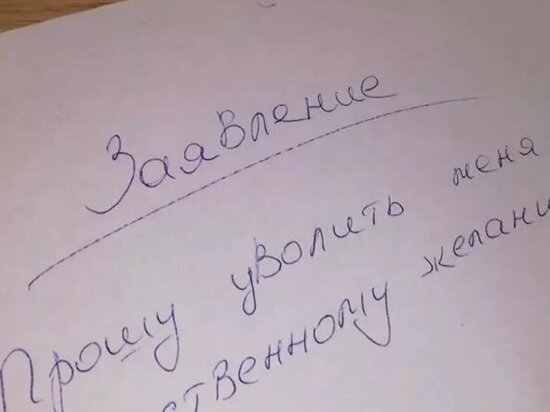 Заявление
Прошу уволить меня
ственному желани